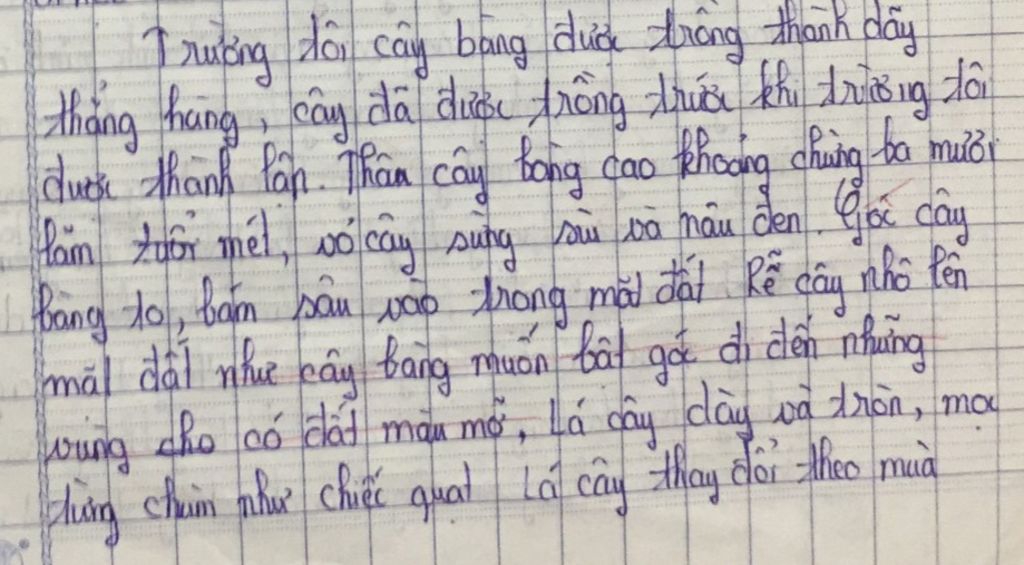 Trường tôi cây bàng được trồng thành dãy
thẳng hàng, cây đã được trồng trước khi trường tôi
được thành lập. Thân cây bàng cao khoảng chừng ba mươi
lăm tuổi mét, vỏ cây sừng sùi và nâu đen. Gốc cây
bàng to, bám sâu vào trong mặt đất. Rễ cây nhô lên
mặt đất như cây bàng muốn bật gốc đi đến những
vùng cho có đất màu mỡ, Lá cây dày và tròn, mọc
từng chùm như chiếc quạt Lá cây thay đổi theo mùa